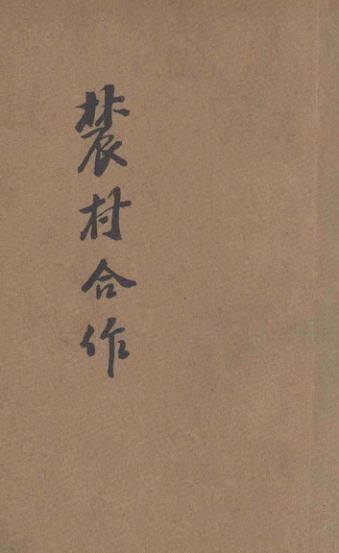 農村合作